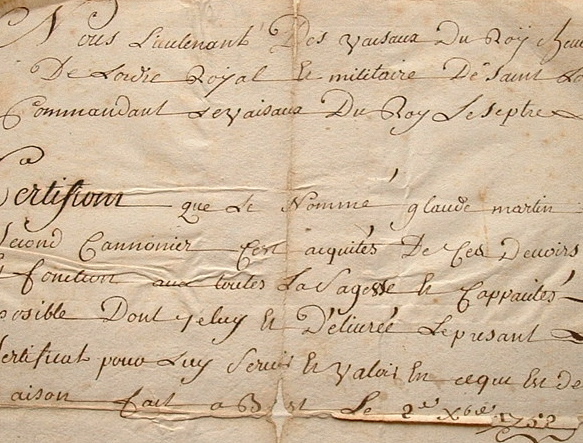 Nous Lieutenant Des vaisaux Du Roy cheu
De Lordre Royal Et militaire De saint Lo
Commandant Le vaisaux Du Roy Le septre
Certifions que Le Nommé glaude martin
second Cannonier C'est aquités De Ces Devoirs
fonction aux toutes La Sagesse Et Cappacités
posible Dont jeluy Et Délivrée Le present
Certificat pour Luy servir Et valoir En cequi Est de
raison fait a B st Le 2e Xbre